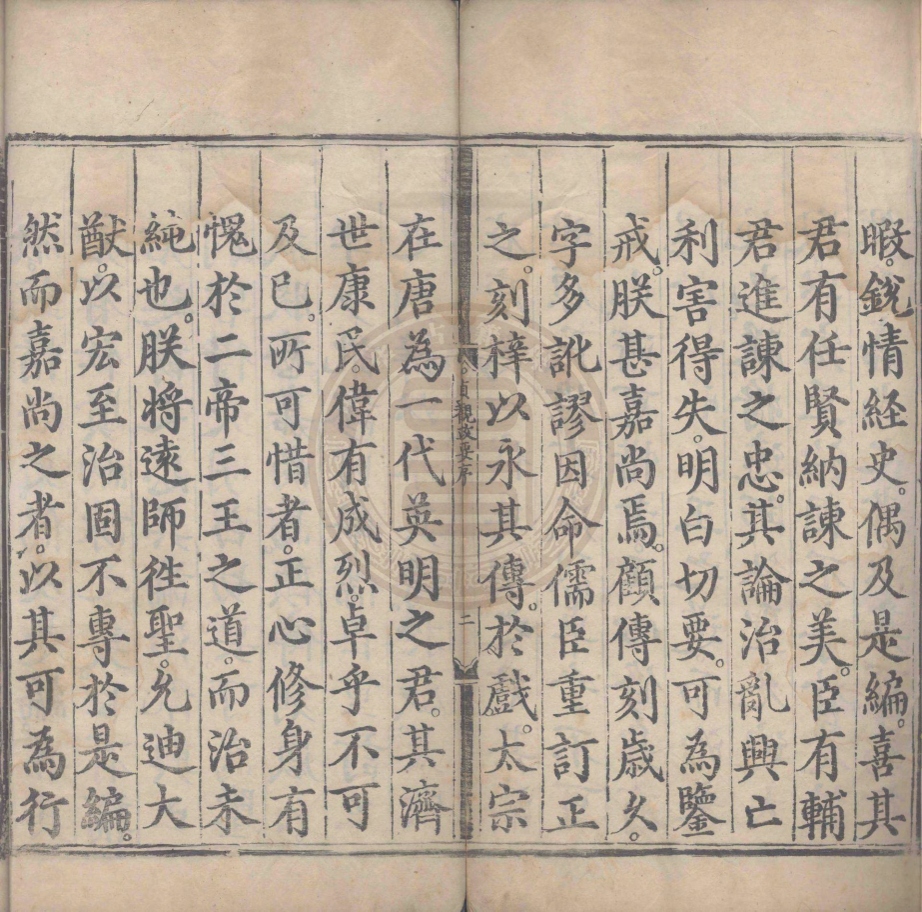 暇。銳情経史。偶及是編。喜其
君有任賢納諫之美。臣有輔
君進諫之忠。其論治亂興亡
利害得失。明白切要。可為鑒
戒。朕甚嘉尚焉。顧傳刻歲久。
字多訛謬。因命儒臣重訂正
之。刻梓以永其傳。於戲。太宗
貞觀政要序
二
在唐為一代英明之君。其濟
世康民。偉有成烈。卓乎不可
及已。所可惜者。正心修身有
愧於二帝三王之道。而治未
純也。朕将遠師徃聖。允迪大
猷。以宏至治。固不專於是編。
然而嘉尚之者。以其可為行